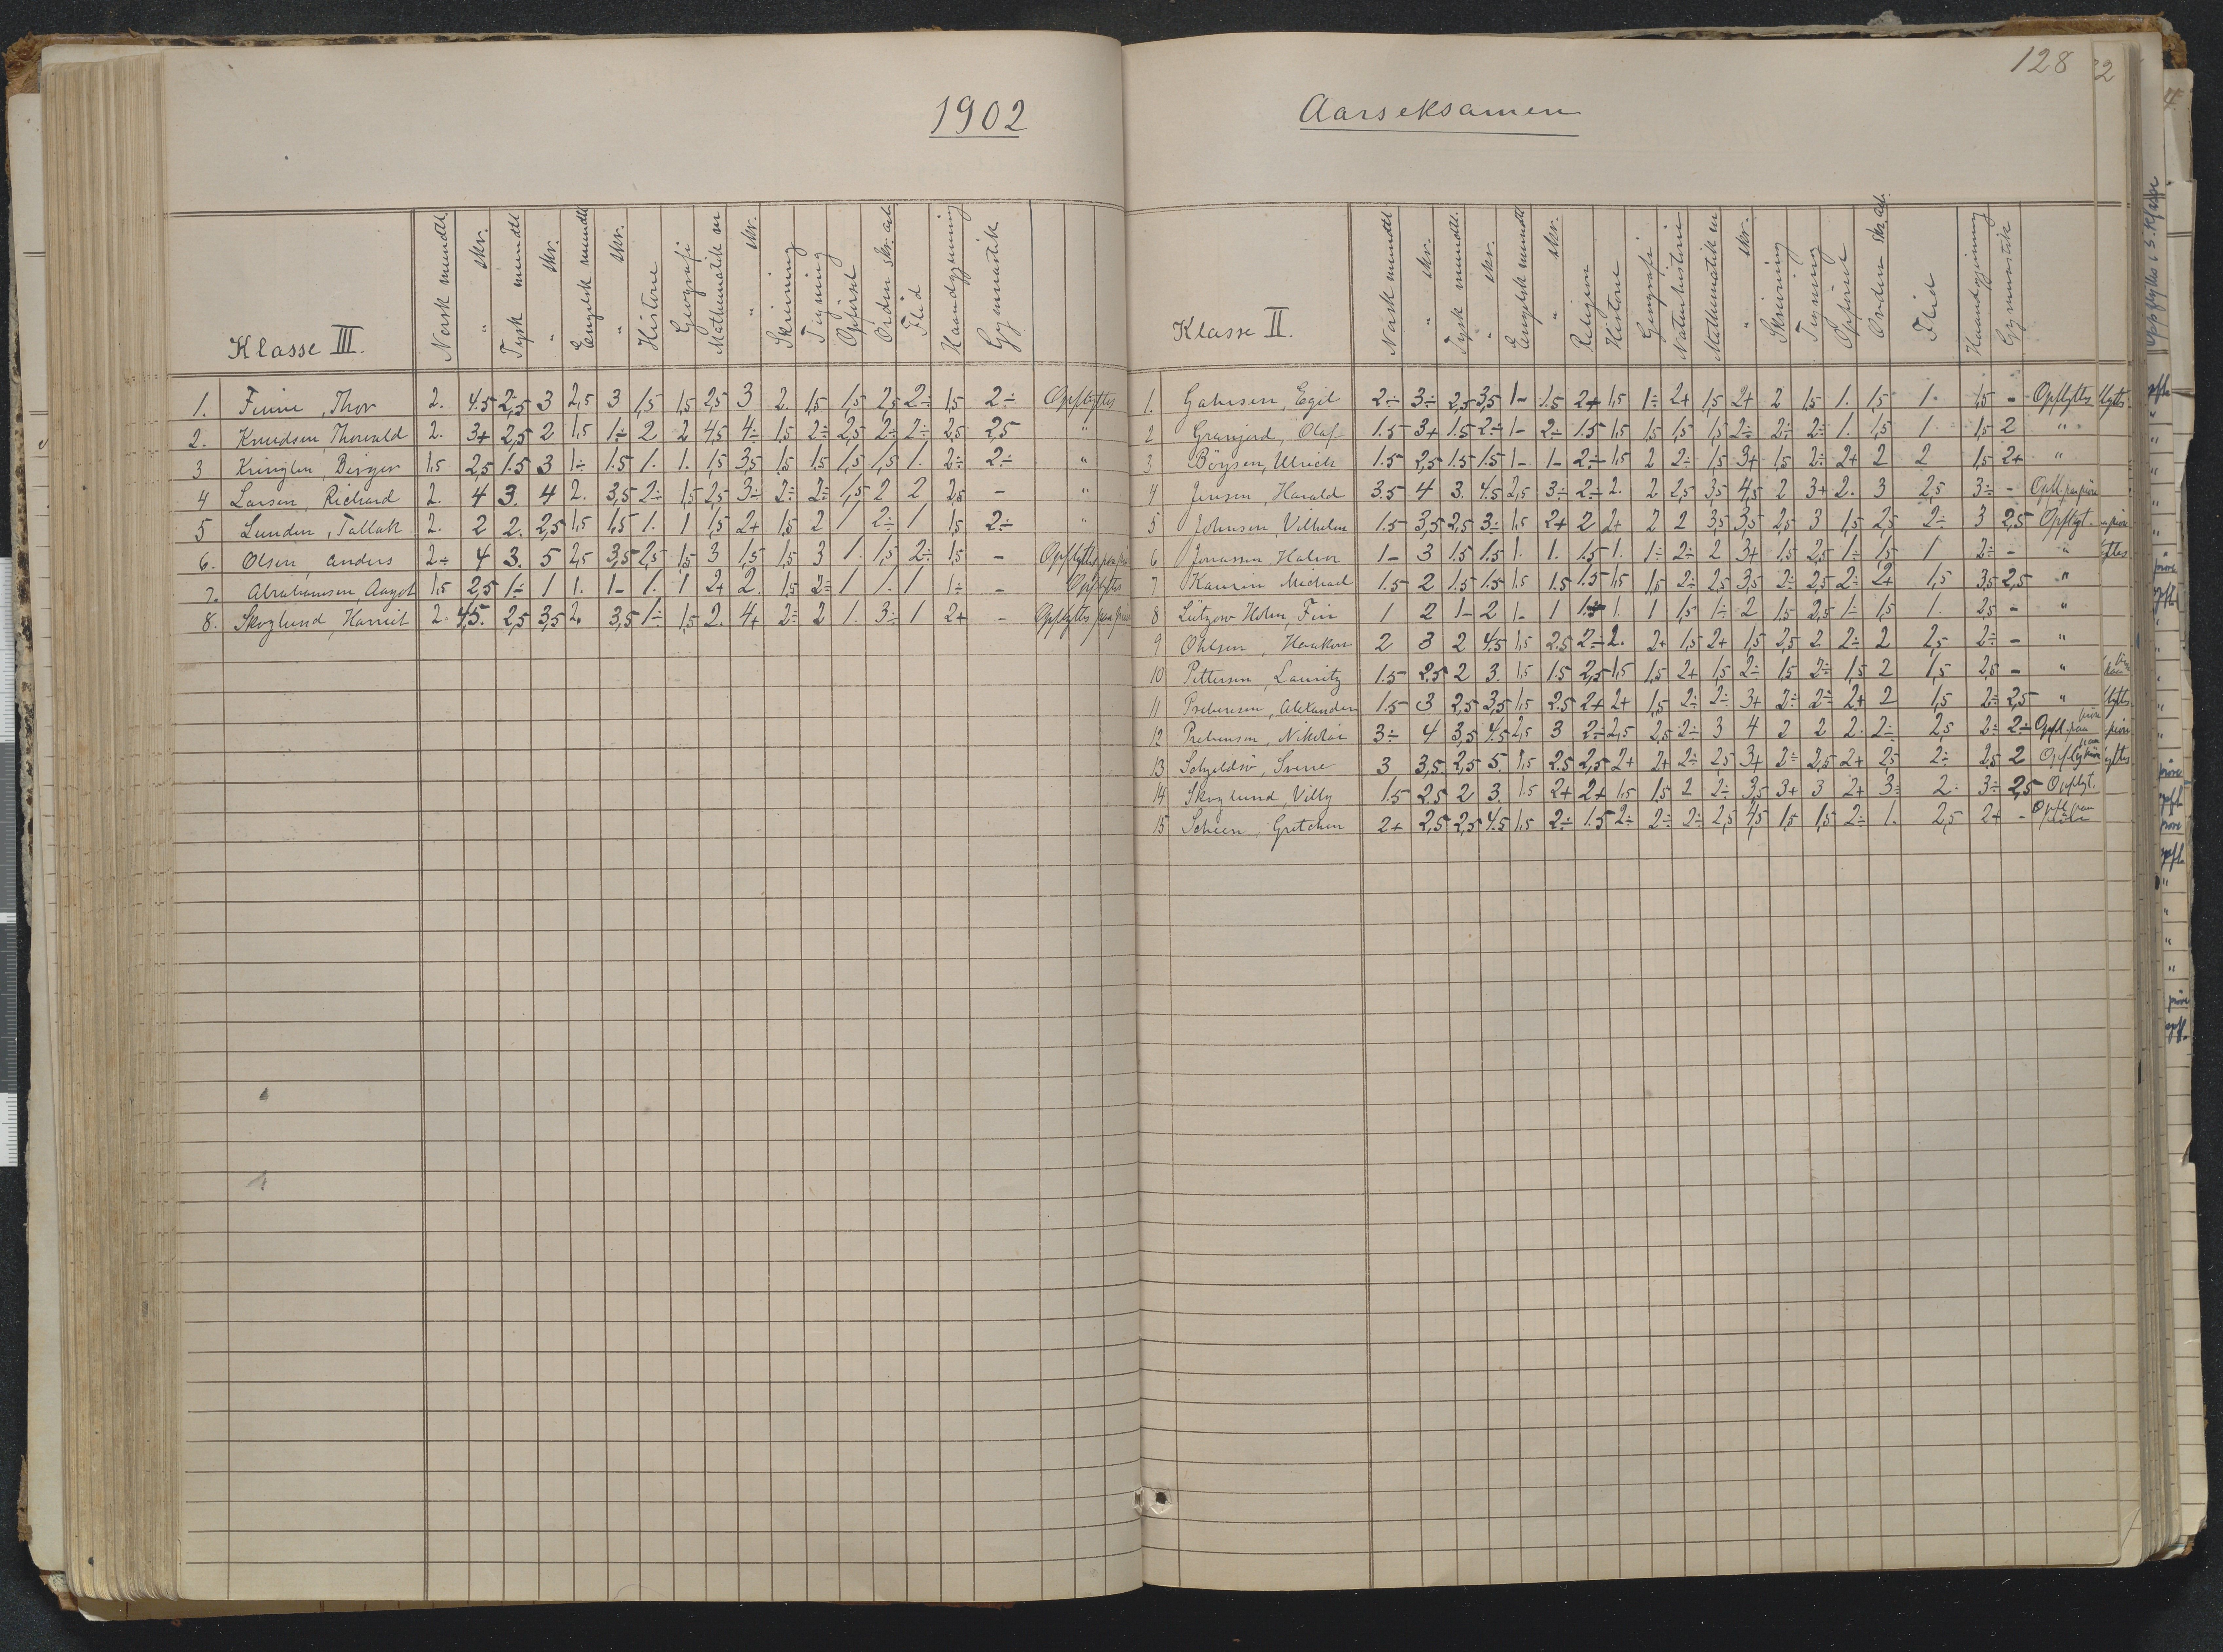 1902
Klasse III. Norsk mundtl. " skr. Tysk mundtl " skr. Engelsk mundtl " skr. Historie Geografi Mathematik m " skr. Skrivning Tegning Opførsel Orden skr. arb. Flid Haandgjerning Gymnastik
1. Finne, Thor 2. 4.5 2,5 3 2,5 3 1,5 1,5 2,5 3 2. 1,5 1,5 2,5 2÷ 1,5 2÷ Opflyttes
2. Knudsen, Thorvald 2. 3+ 2,5 2 1,5 1÷ 2 2 4,5 4÷ 1,5 2÷ 2,5 2÷ 2÷ 2,5 2,5 "
3 Kringlen, Birger 1,5 2,5 1.5 3 1÷ 1.5 1. 1. 1,5 3,5 1,5 1,5 1,5 1,5 1. 2÷ 2÷ "
4 Larsen, Richard 2. 4 3. 4 2. 3,5 2÷ 1,5 2,5 3÷ 2÷ 2÷ 1,5 2 2 2,5 - "
5 Lunden, Tallak 2. 2 2. 2,5 1,5 1,5 1. 1 1,5 2+ 1,5 2 1 2÷ 1 1,5 2÷ "
6. Olsen, Anders 2÷ 4 3. 5 2,5 3,5 2,5 1,5 3 1,5 1,5 3 1. 1,5 2÷ 1,5 - Opflyttes paa
7. Abrahamsen Aagot 1,5 2,5 1÷ 1 1. 1- 1. 1 2+ 2. 1,5 2÷ 1 1. 1 1÷ - Opflyttes
8. Skoglund, Harriet 2. 4,5. 2,5 3,5 2. 3,5 1÷ 1,5 2. 4+ 2÷ 2 1. 3÷ 1 2+ - Opflyttes paa prøve
128
Aarseksamen
Klasse II. Norsk mundtl " skr. Tysk mundtl. " skr. Engelsk mundtl " skr. Religion Historie Geografi Naturhistorie Mathematik m " skr. Skrivning Tegning Opførsel Orden skr. arb. Flid Haandgjerning Gymnastik
1. Egil 2÷ 3÷ 2,5 3,5 1- 1.5 2+ 1,5 1÷ 2+ 1,5 2+ 2 1,5 1. 1,5 1. 1,5 - Opflyttes
2 Granjord, Olaf 1.5 3+ 1.5 2÷ 1- 2÷ 1.5 1,5 1,5 1,5 1,5 2÷ 2÷ 2÷ 1. 1,5 1. 1,5 2 "
3 Böysen, Ulrich 1.5 2,5 1.5 1.5 1- 1- 2÷ 1,5 2 2÷ 1,5 3+ 1,5 2÷ 2+ 2 2 1,5 2+ "
4 Jensen, Harald 3.5 4 3. 4.5 2,5 3÷ 2÷ 2. 2 2,5 3,5 4,5 2 3+ 2. 3 2,5 3÷ - Opfl. paa prøve
5 Johnsen, Vilhelm 1.5 3,5 2,5 3÷ 1,5 2+ 2 2+ 2 2 3,5 3,5 2,5 3 1,5 2,5 2÷ 3 2,5 Opflyt.
6 Jonassen, Halvor 1- 3 1.5 1.5 1. 1. 1.5 1. 1÷ 2÷ 2 3+ 1,5 2,5 1÷ 1,5 1 2÷ - "
7 Kaurin Michael 1.5 2 1.5 1.5 1,5 1.5 1.5 1,5 1,5 2÷ 2,5 3,5 2÷ 2,5 2÷ 2+ 1,5 3,5 2,5 "
8 Lützow Holm, Fin 1 2 1- 2 1- 1 1.5 1. 1 1,5 1÷ 2 1,5 2,5 1÷ 1,5 1. 2,5 - "
9 Ohlsen, Haakon 2 3 2 4.5 1,5 2.5 2÷ 2. 2+ 1,5 2+ 1,5 2,5 2. 2÷ 2 2,5 2÷ - "
10 Pettersen, Lauritz 1.5 2.5 2 3. 1,5 1.5 2,5 1,5 1,5 2+ 1,5 2÷ 1,5 2÷ 1,5 2 1,5 2,5 - "
11 Prebensen, Alexander 1.5 3 2,5 3,5 1,5 2.5 2+ 2+ 1,5 2÷ 2÷ 3+ 2÷ 2÷ 2+ 2 1,5 2÷ 2,5 "
12 Prebensen, Nikolai 3÷ 4 3,5 4.5 2,5 3 2÷ 2,5 2,5 2÷ 3 4 2 2 2. 2÷ 2,5 2÷ 2÷ Opfl. paa prøve
13 Sverre 3 3,5 2,5 5. 1,5 2.5 2,5 2+ 2+ 2÷ 2,5 3+ 2÷ 2,5 2+ 2,5 2÷ 2,5 2
14 Skoglund, Villy 1.5 2.5 2 3. 1.5 2+ 2+ 1,5 1,5 2 2÷ 3,5 3+ 3 2+ 3÷ 2÷ 3÷ 2,5 Opflyt.
15 Scheen, Gretchen 2+ 2,5 2,5 4.5 1,5 2÷ 1.5 2÷ 2÷ 2÷ 2,5 4,5 1,5 1,5 2÷ 1. 2,5 2+ - Opfl. paa prøve